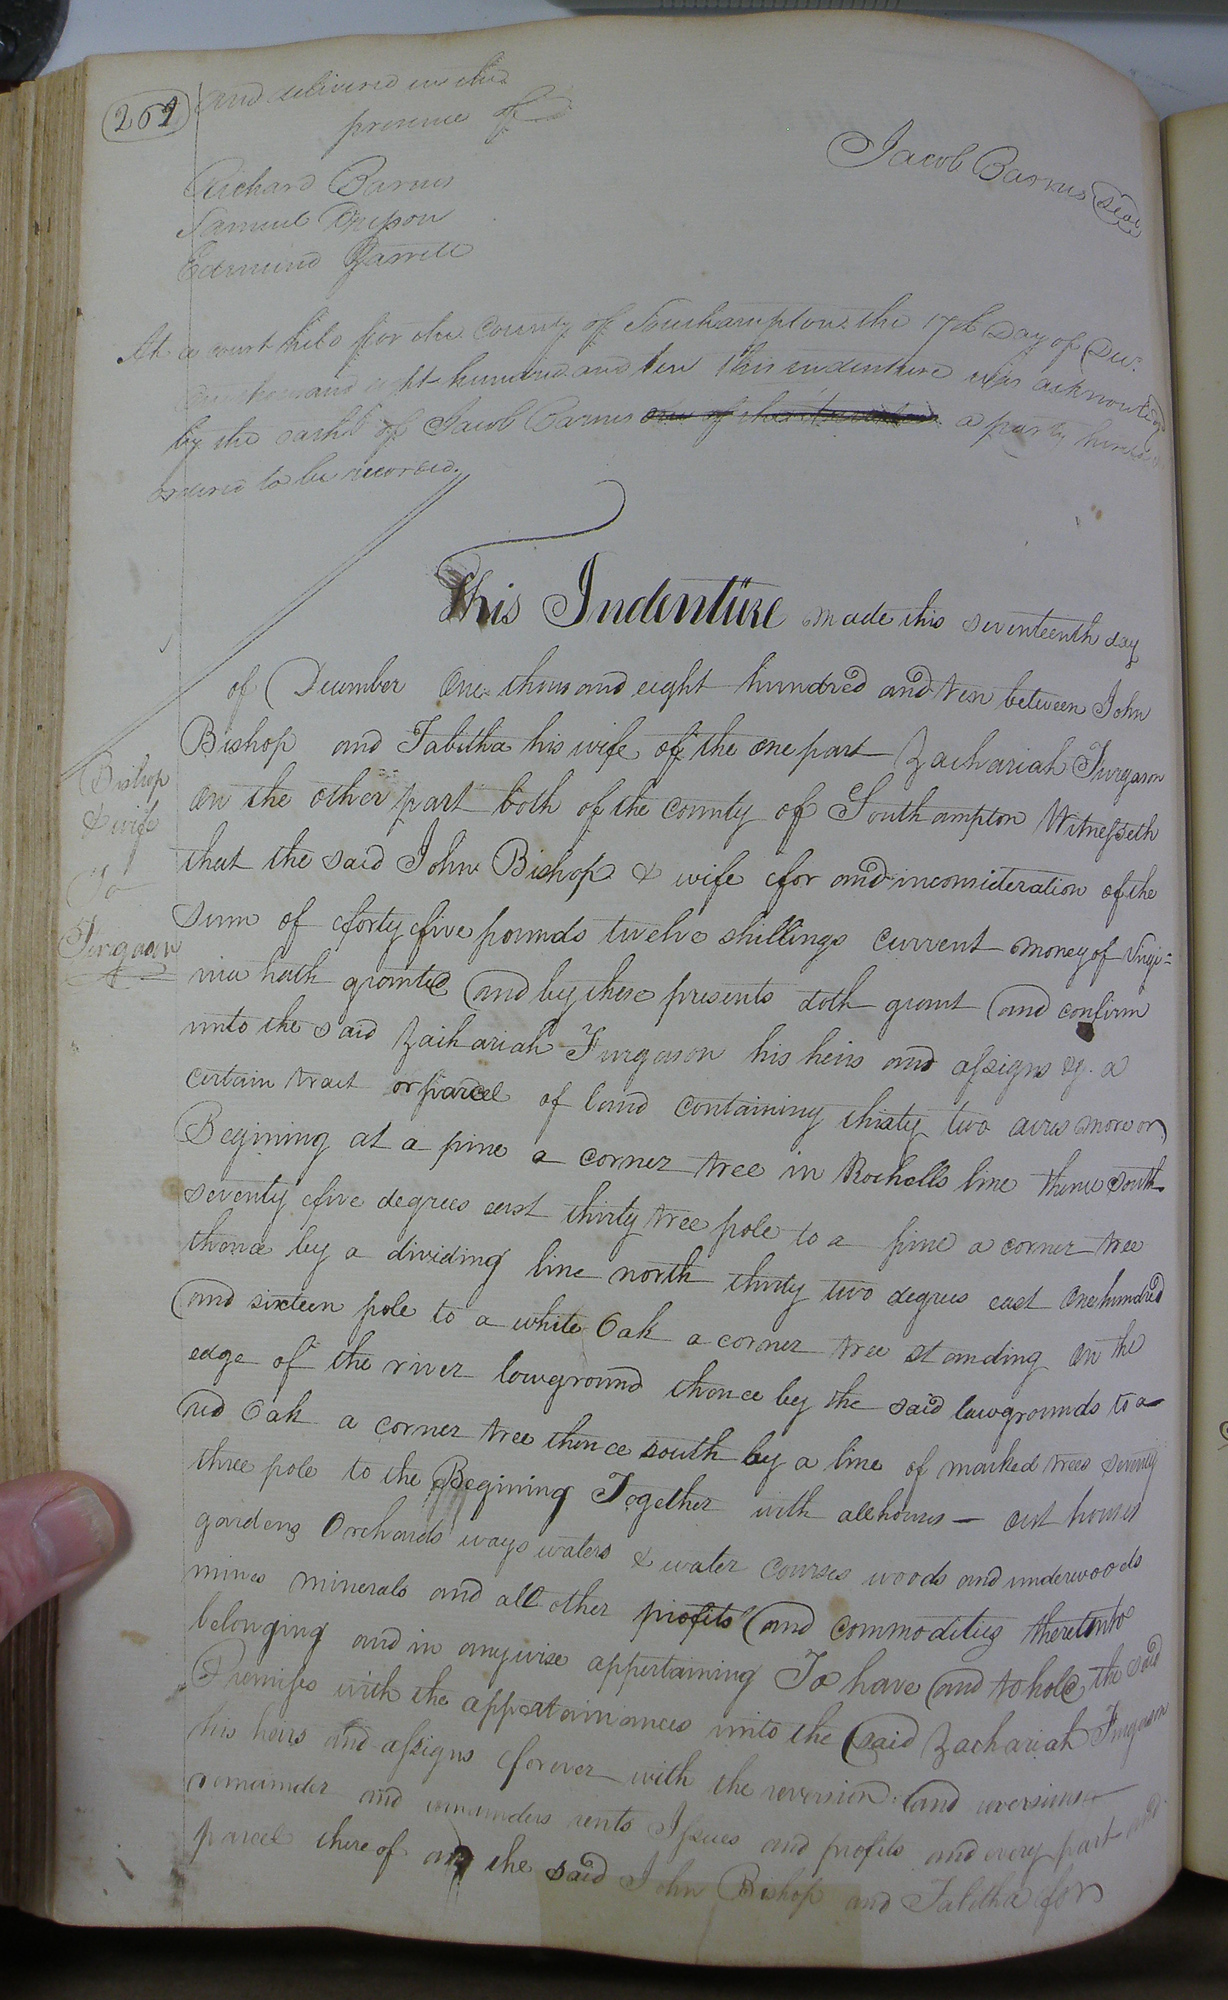 262
and delivered in the
presence of
Jacob Barnes Seal
Richard Barnes
Samuel
Edmund Barrett
At a court held for the County of Southampton the 17th Day of Decr.
One thousand eight hundred and ten This indenture was acknowledged
by the of Jacob Barnes one of the a party hereto
ordered to be recorded.
This Indenture made this seventeenth day
of December One thousand eight hundred and ten between John
Bishop and Tabitha his wife of the one part Zachariah Furgason
on the other part both of the county of Southampton Witnesseth
that the said John Bishop & wife for and inconsideration of the
sum of forty five pounds twelve shillings current money of Virgi-
nia hath granted and by these presents doth grant and confirm
unto the said Zachariah Furgason his heirs and assigns a
certain tract or parcel of land containing thirty two acres more or
Begining at a pine a corner tree in Rochells line thence South
seventy five degrees east thirty tree pole to a pine a corner tree
thence by a dividing line north thirty two degrees east one hundred
and sixteen pole to a white Oak a corner tree standing on the
edge of the river lowground thence by the said lowgrounds to a
red Oak a corner tree thence south by a line of marked trees seventy
three pole to the Begining Together with all houses — out houses
gardens Orchards ways waters & water courses woods and underwoods
mines minerals and all other profits and commodities thereunto
belonging and in anywise appertaining To have and to hold the said
Premises with the appertainances unto the said Zachariah Furgason
his heirs and assigns forever with the reversion and reversions
remainder and remainders rents Issues and profits and every part and
parcel there of and the said John Bishop and Tabitha for
Bishop
& wife
To
Furgason